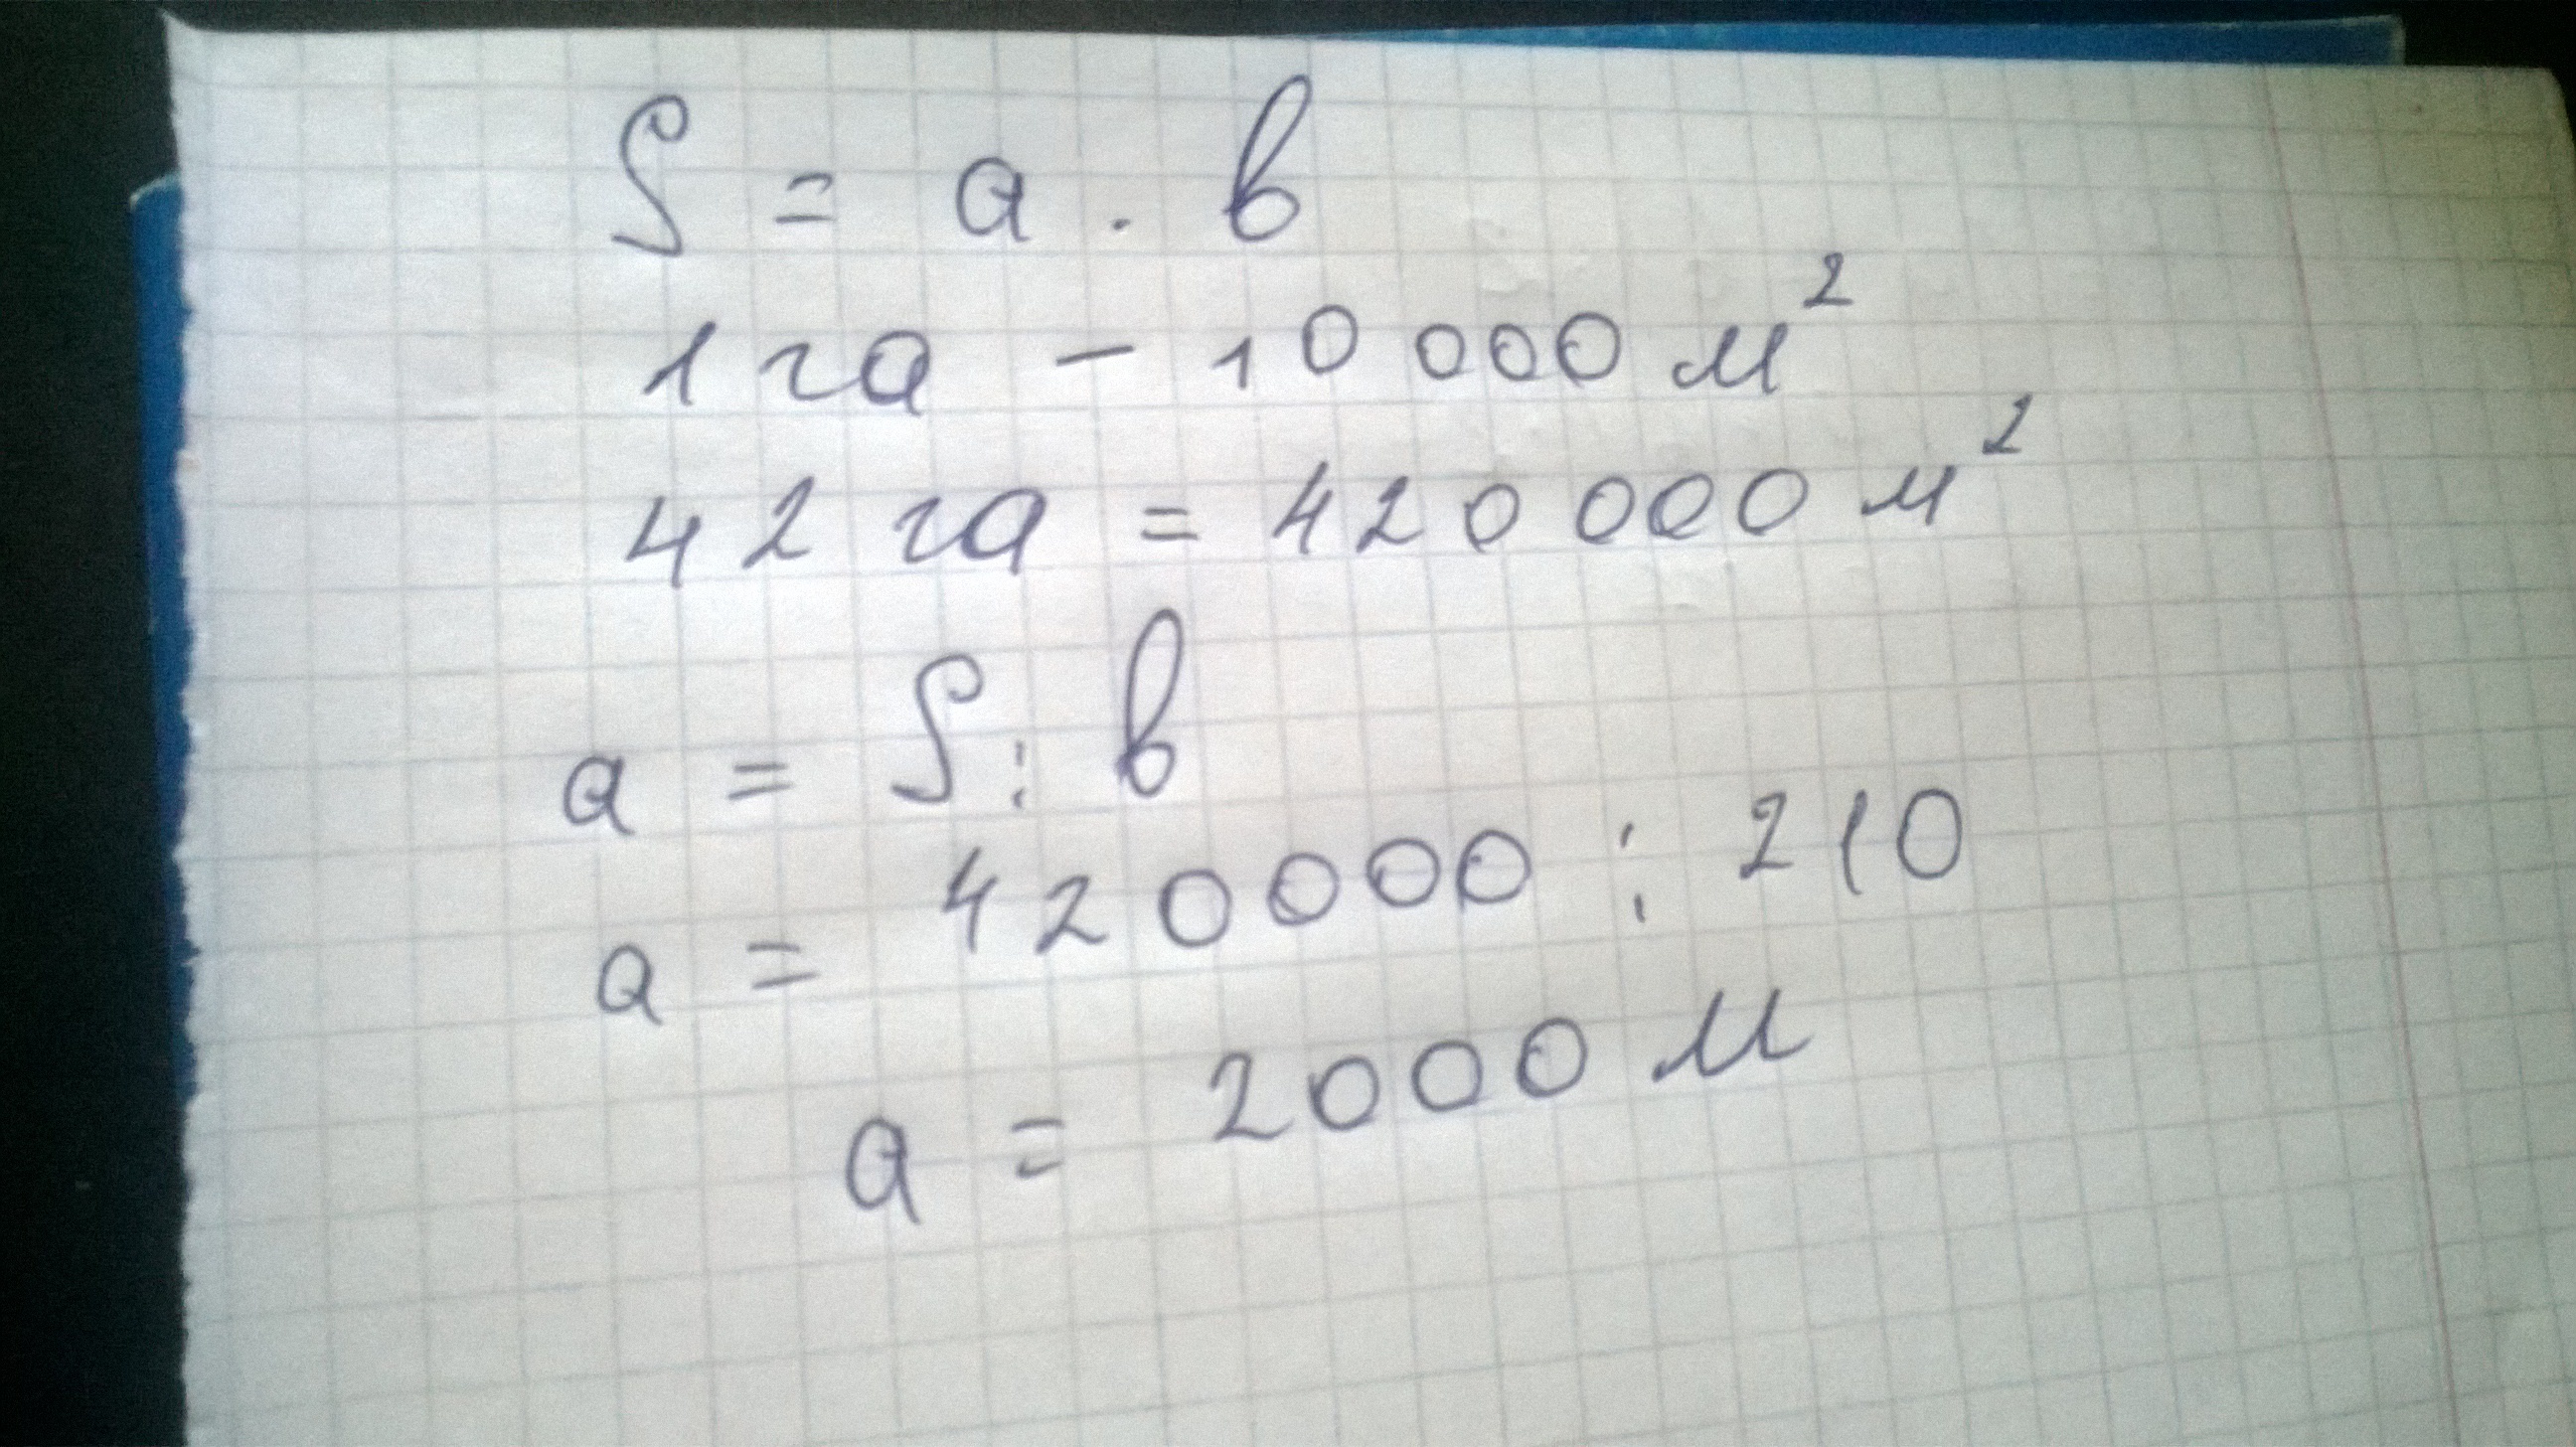 S = a · в
1 га – 10 000 м²
42 га = 420 000 м²
a = S : в
a = 420000 : 210
a = 2000 м